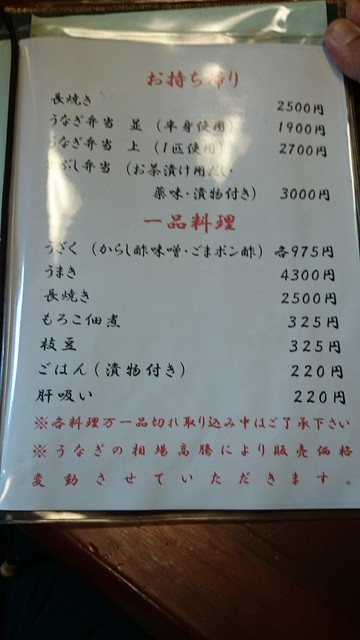 お持ち帰り
長焼き 2500円
うなぎ弁当 並 (半身使用) 1900円
うなぎ弁当 上 (1匹使用) 2700円
ぶし弁当 (お茶漬け用だし
薬味・漬物付き) 3000円
一品料理
うざく (からし酢味噌・ごまポン酢) 各975円
うまき 4300円
長焼き 2500円
もろこ佃煮 325円
枝豆 325円
ごはん (漬物付き) 220円
肝吸い 220円
※各料理万一品切れ取り込み中はご了承下さい
※うなぎの相場高騰により販売価格
変動させていただきます。